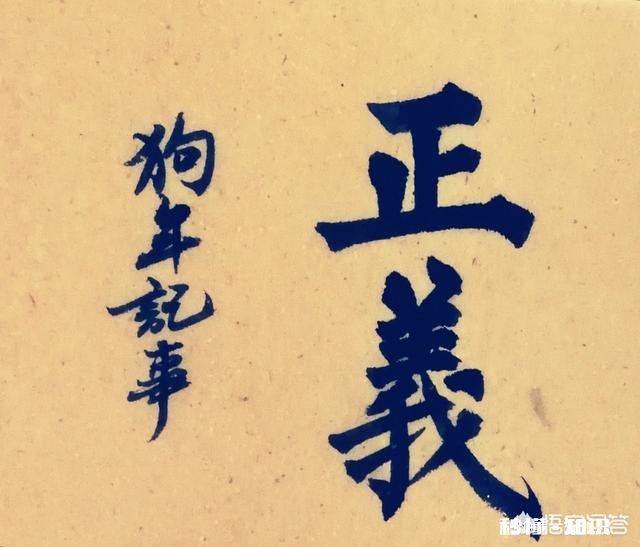 正義
狗年記事